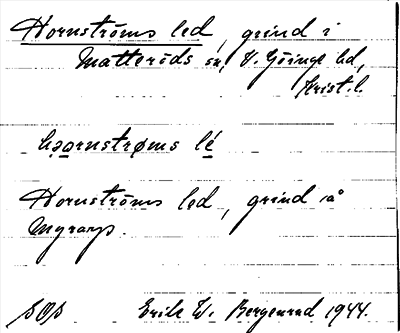 Hornströms led, grind i
Matteröds sn, V. Göinge hd,
Krist. l.
hə̣ornstrøms lé
Hornströms led, grind på
Myrarp.
SOP Erik W. Bergenrud 1944.